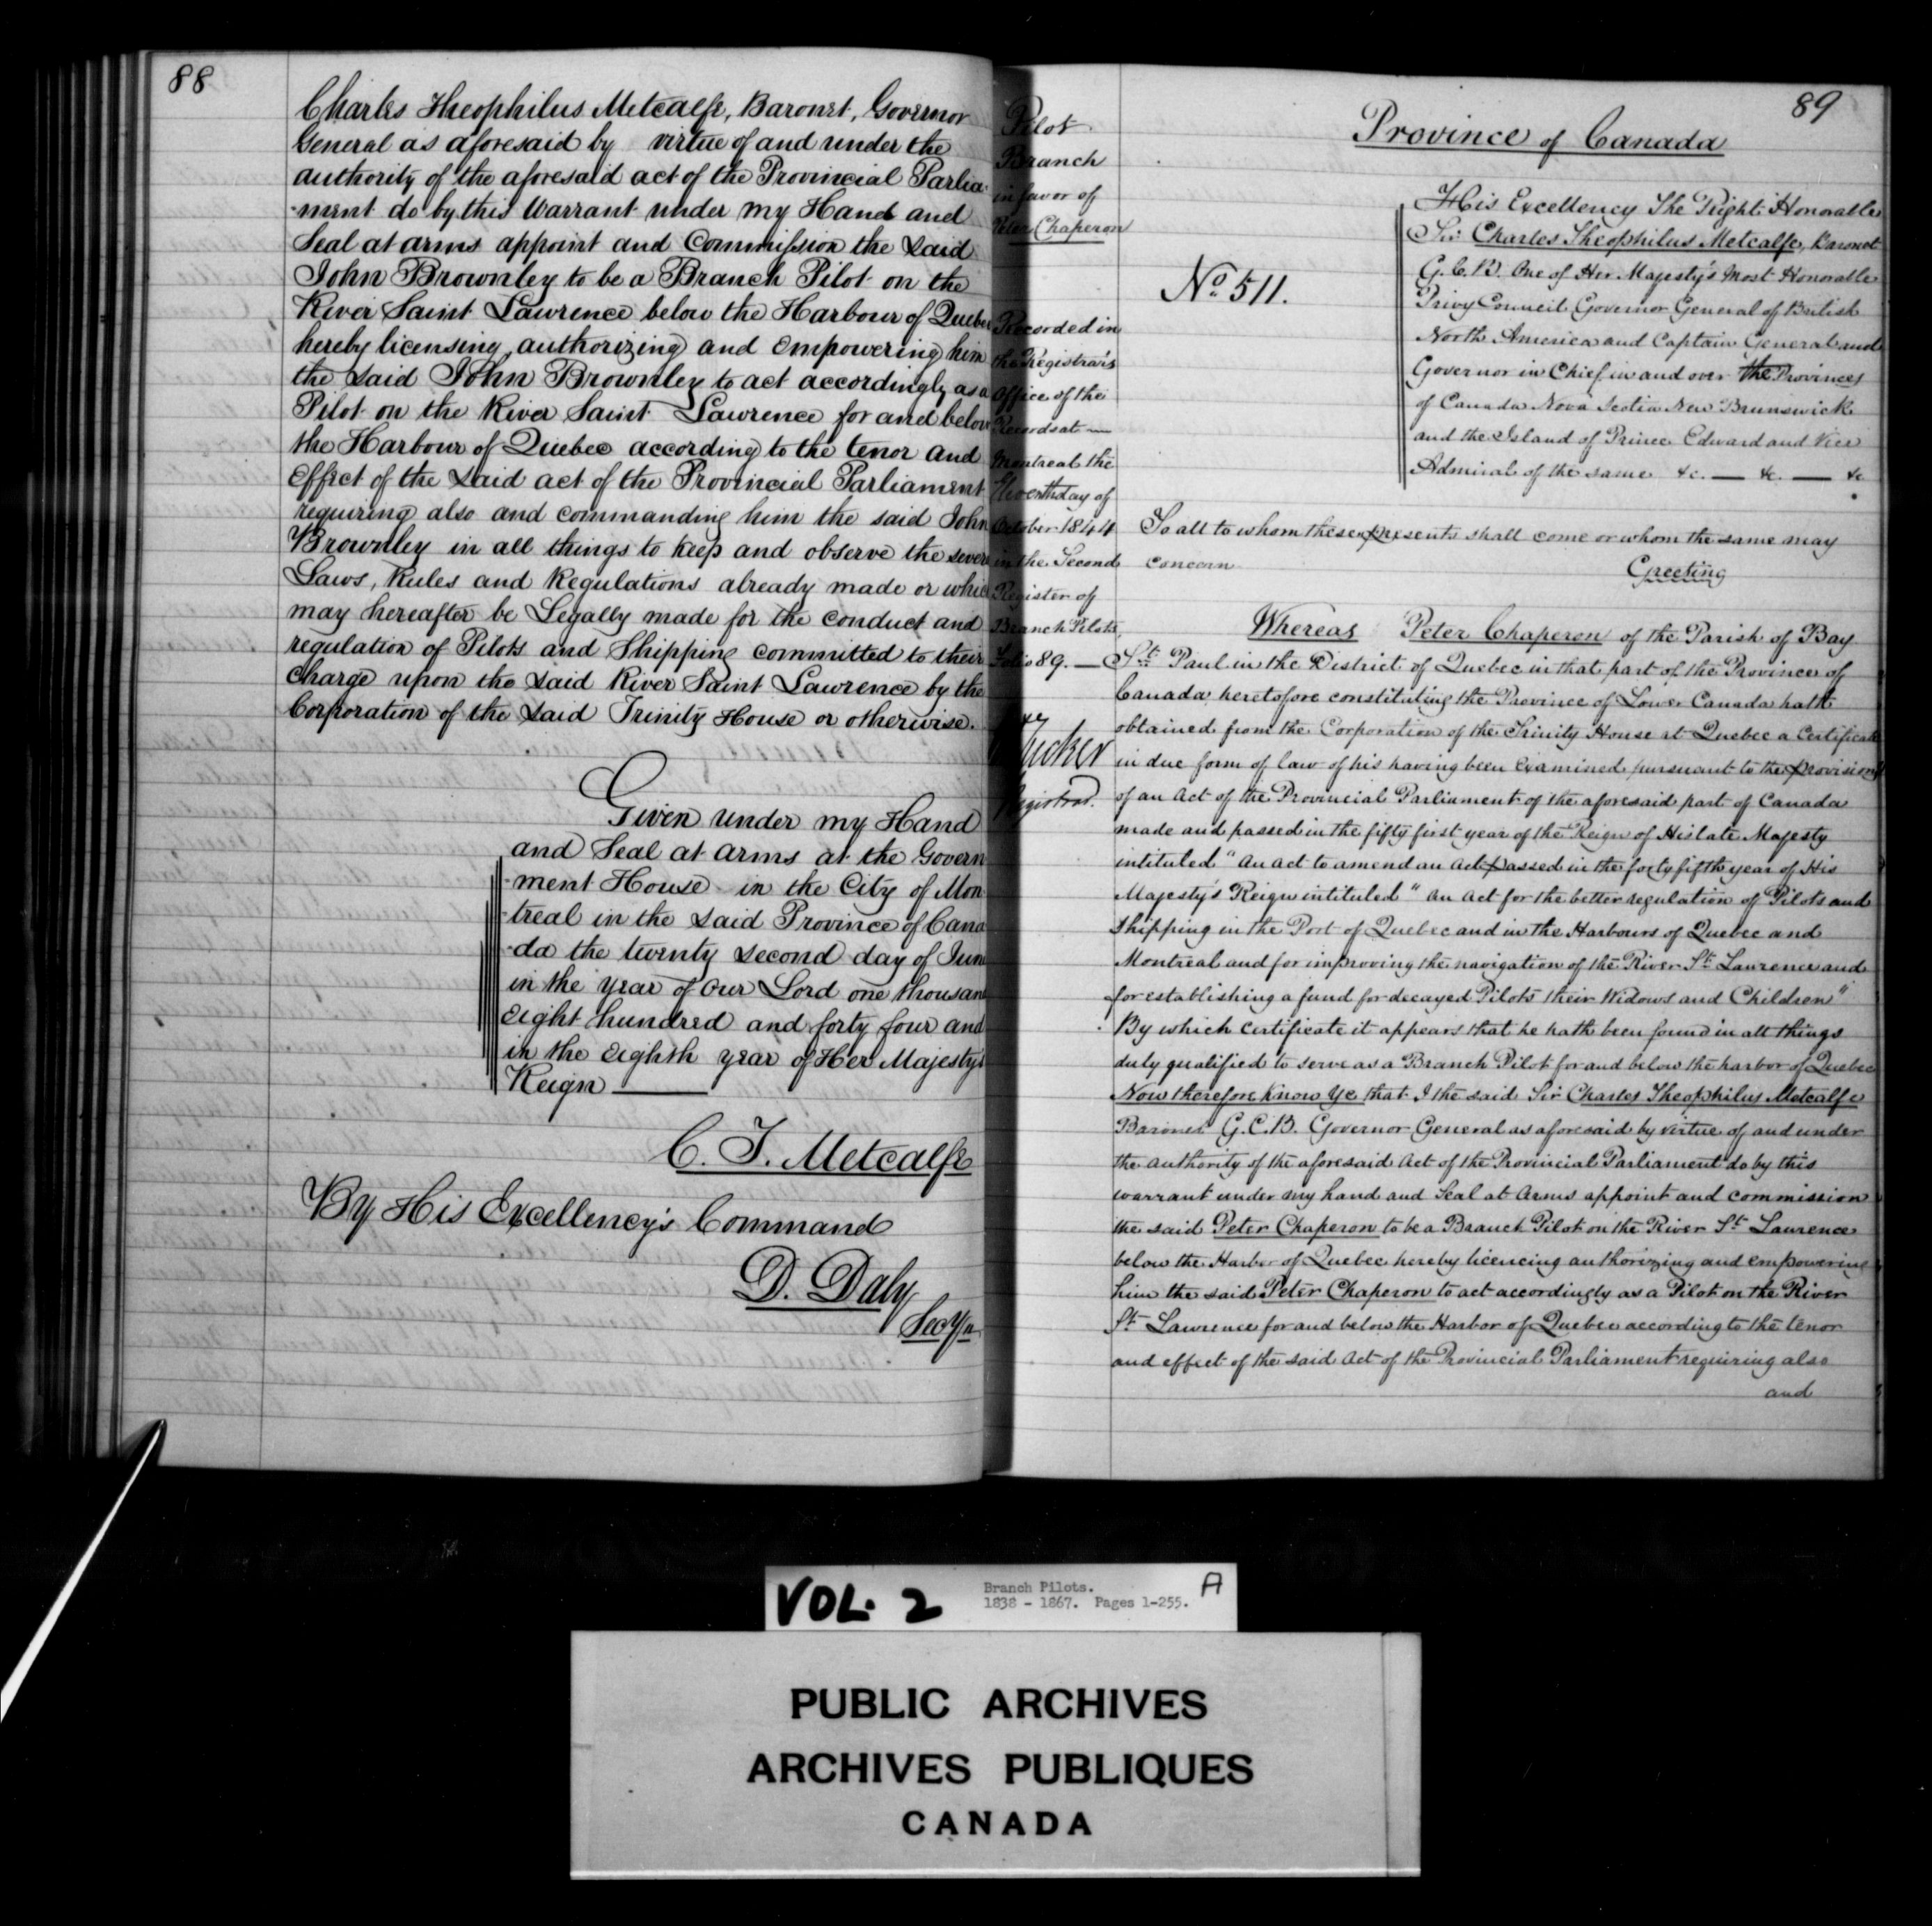 88
Charles Theophilus Metcalfe, Baronet, Governor
General as aforesaid by virtue of and under the
authority of the aforesaid act of the Provincial Parlia-
-ment do by this Warrant under my Hand and
Seal at arms appoint and Commission the said
John Brownley to be a Branch Pilot on the
River Saint Lawrence below the Harbour of Quebec
hereby licensing, authorizing and empowering him
the said John Brownley to act accordingly as a
Pilot on the River Saint Lawrence for and below
the Harbour of Quebec according to the tenor and
Effect of the said act of the Provincial Parliament
requiring also and commanding him the said John
Brownley in all things to keep and observe the sever
Laws, Rules and Regulations already made or whic
may hereafter be Legally made for the conduct and
regulation of Pilots and Shipping committed to their
Charge upon the said River Saint Lawrence by the
Corporation of the said Trinity House or otherwise.
Given under my Hand
and Seal at arms at the Govern
-ment House in the City of Mon
-treal in the said Province of Cana
-da the twenty second day of Jun
in the year of our Lord one thousan
Eight hundred and forty four and
in the Eighth year of Her Majesty's
Reign
C. T. Metcalfe
By His Excellency's Command
D. Daly
Secy
Pilot
Branch
in favor of
Peter Chaperon
Recorded in
the Registrar's
Office of the
Records at
Montreal the
day of
October 1844
in the Second
Register of
Branch Pilots,
Folio 89.
Tucker
Registrar.
89
Province of Canada
No. 511.
His Excellency The Right Honorable
Sir Charles Theophilus Metcalfe, Baronet
G.C.B. One of Her Majesty's Most Honorable
Privy Council Governor General of British
North America and Captain General and
Governor in Chief in and over the Provinces
of Canada Nova Scotia New Brunswick
and the Island of Prince Edward and Vice
Admiral of the same &c. — &c. — &c
To all to whom these presents shall come or whom the same may
concern
Greeting
Whereas Peter Chaperon of the Parish of Bay
St. Paul in the District of Quebec in that part of the Province of
Canada heretofore constituting the Province of Lower Canada hath
obtained from the Corporation of the Trinity House at Quebec a Certificate
in due form of law of his having been examined pursuant to the provisions
of an Act of the Provincial Parliament of the aforesaid part of Canada
made and passed in the fifty first year of the Reign of His late Majesty
intituled "An Act to amend an Act passed in the forty fifth year of His
Majesty's Reign intituled "An Act for the better regulation of Pilots and
Shipping in the Port of Quebec and in the Harbours of Quebec and
Montreal and for improving the navigation of the River St. Lawrence and
for establishing a fund for decayed Pilots their Widows and Children"
By which Certificate it appears that he hath been found in all things
duly qualified to serve as a Branch Pilot for and below the harbor of Quebec
Now therefore Know Ye that I the said Sir Charles Theophilus Metcalfe
Baronet G.C.B. Governor General as aforesaid by virtue of and under
the authority of the aforesaid Act of the Provincial Parliament do by this
warrant under my hand and Seal at Arms appoint and commission
the said Peter Chaperon to be a Branch Pilot on the River St. Lawrence
below the Harbor of Quebec hereby licencing authorizing and empowering
him the said Peter Chaperon to act accordingly as a Pilot on the River
St. Lawrence for and below the Harbor of Quebec according to the tenor
and effect of the said Act of the Provincial Parliament requiring also
and
VOL. 2
Branch Pilots.
1838 - 1867. Pages 1-255.
A
PUBLIC ARCHIVES
ARCHIVES PUBLIQUES
CANADA